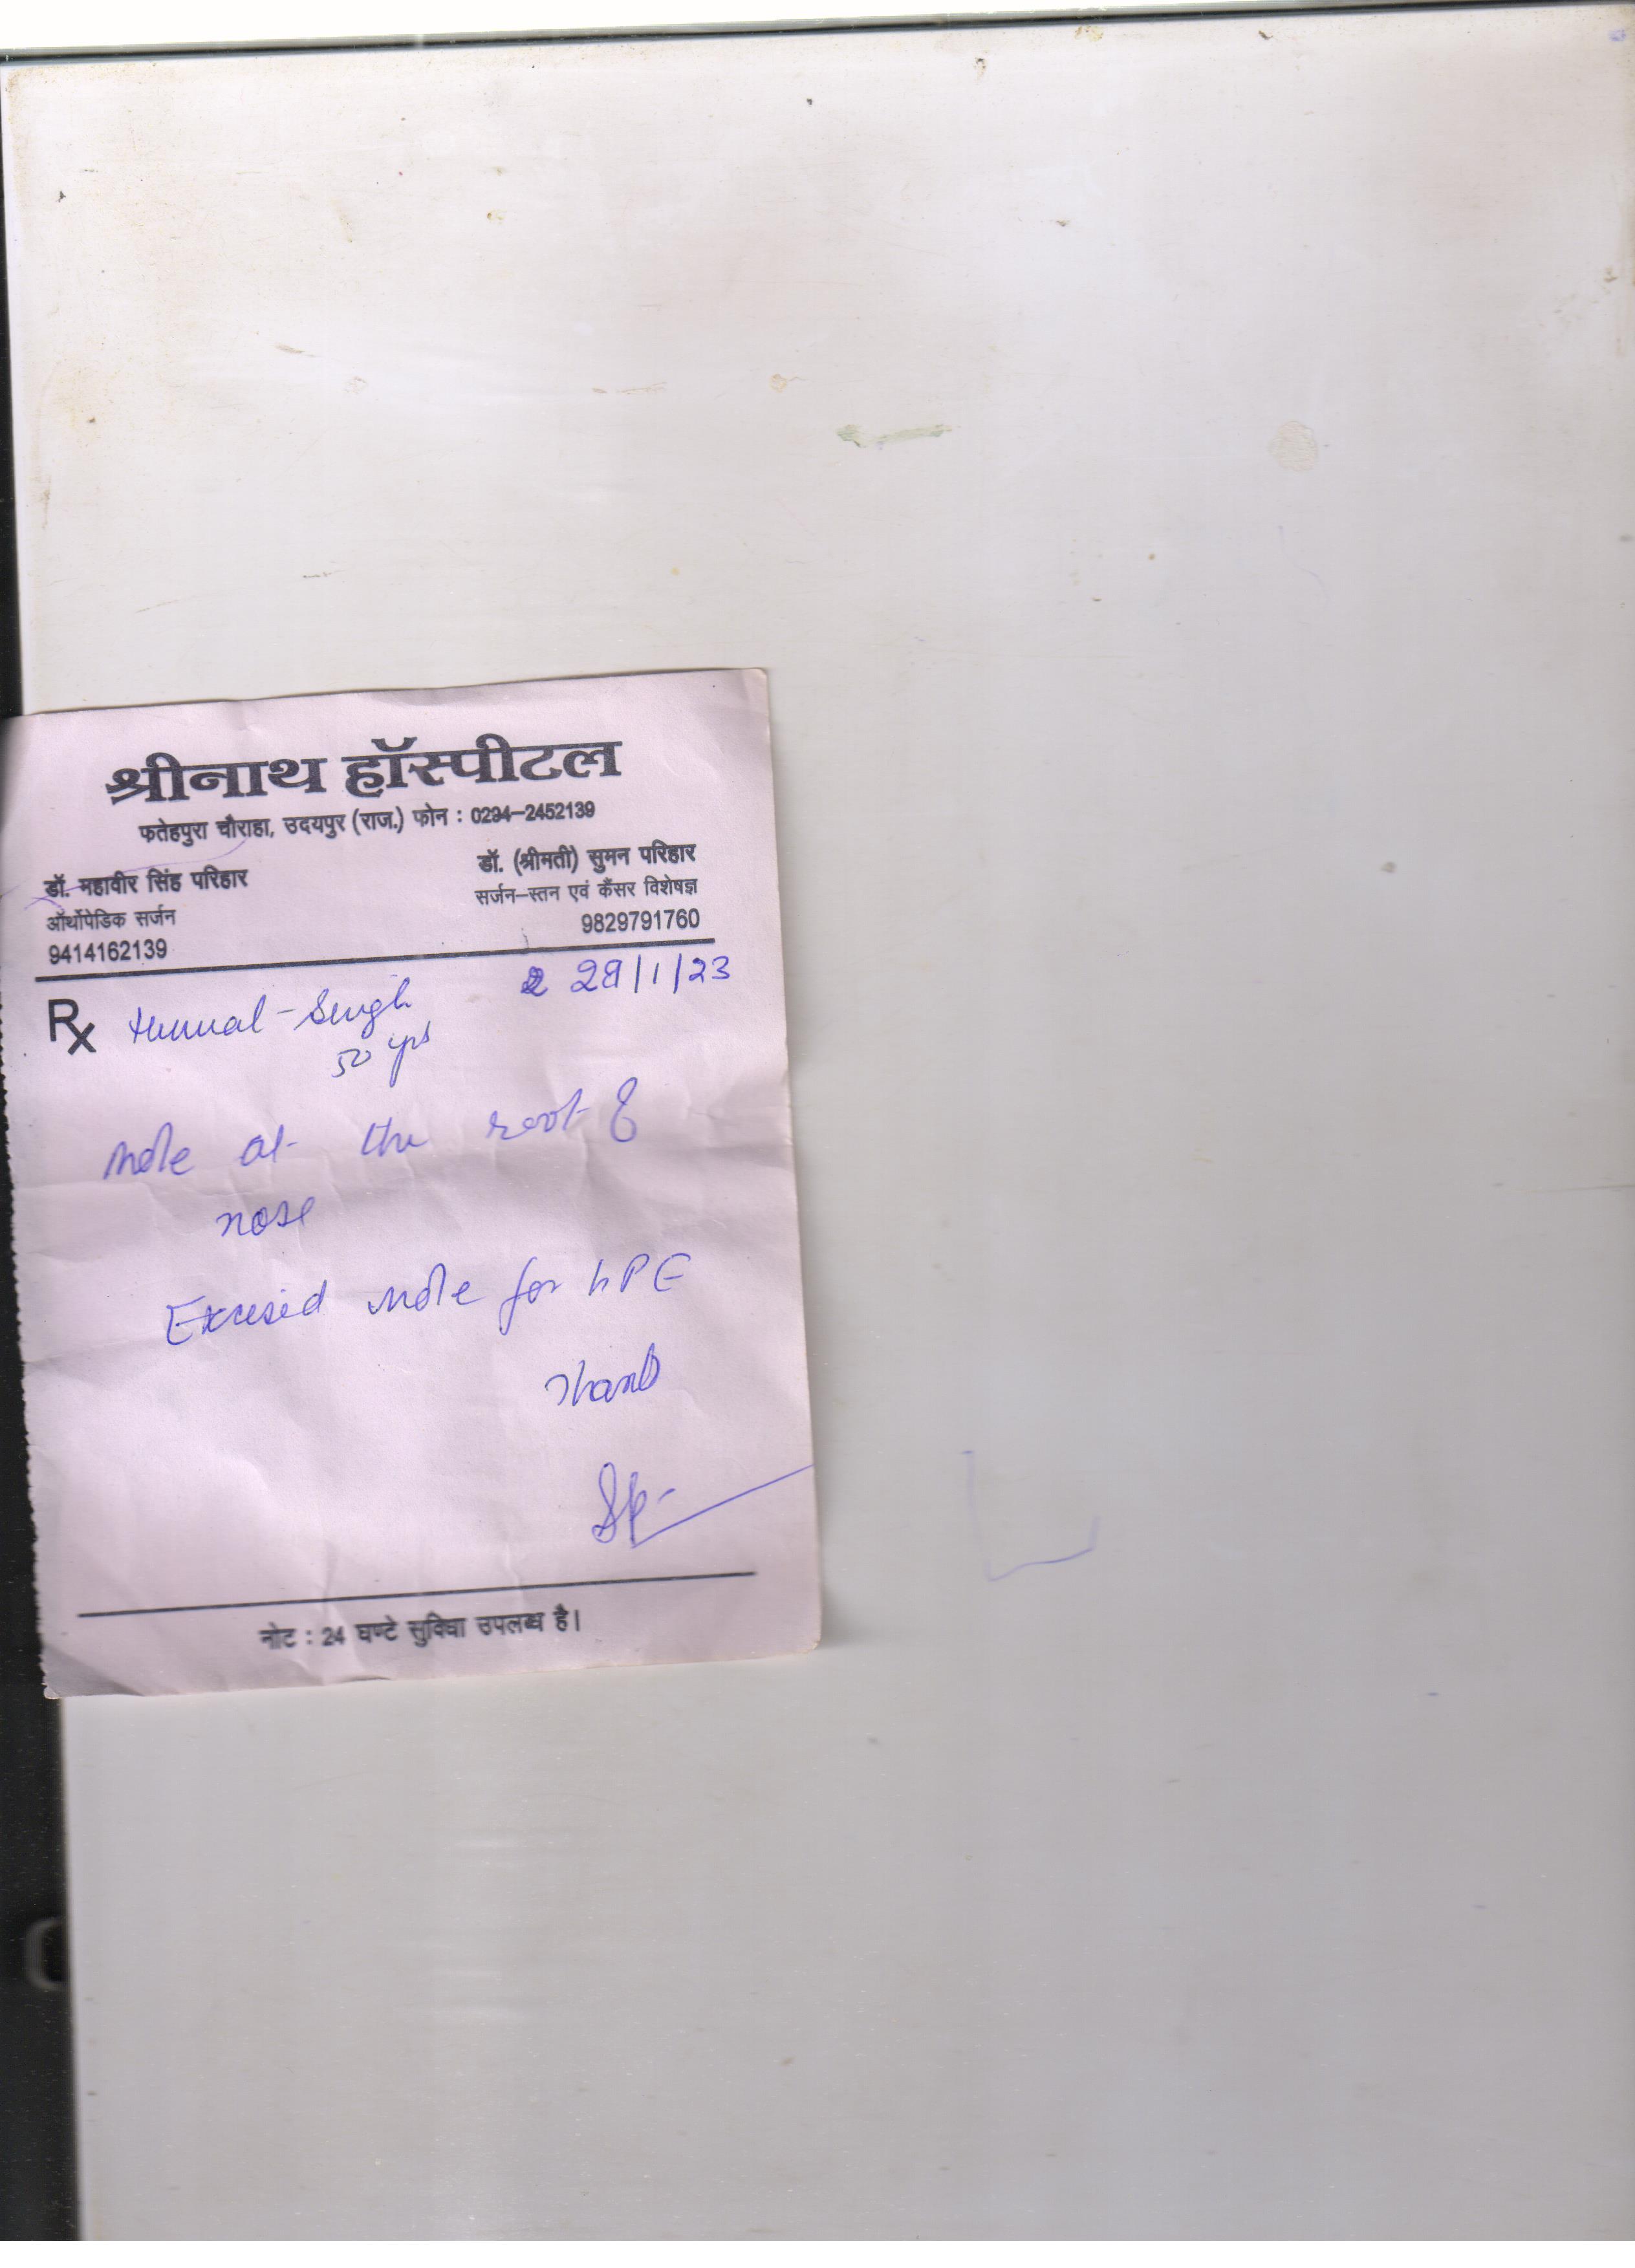 श्रीनाथ हॉस्पीटल
फतेहपुरा चौराहा, उदयपुर (राज.) फोन : 0294-2452139
डॉ. महावीर सिंह परिहार
ऑर्थोपेडिक सर्जन
9414162139
डॉ. (श्रीमती) सुमन परिहार
सर्जन-स्तन एवं कैंसर विशेषज्ञ
9829791760
28/1/23
Rx Singh
50 yrs
Mole at the root of
nose
Excised mole for HPE
Thanks
नोट : 24 घण्टे सुविधा उपलब्ध है।